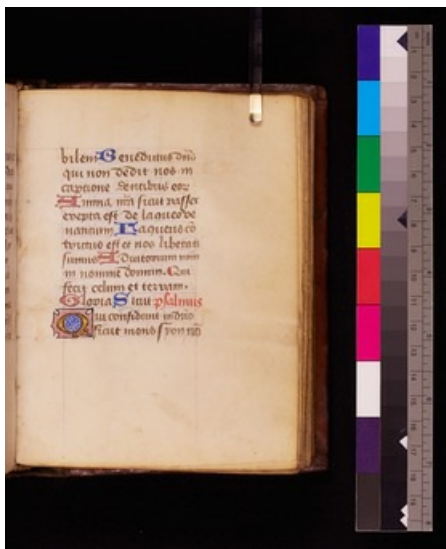 bilem Benedictus dn̄s
qui non dedit nos in
captione dentibus eor̄
Anima nr̄a sicut passer
erepta est de laqueo ve
nantium Laqueus cō
tritus est et nos liberati
sumus Adiutorium nr̄m
in nomine domini. Qui
fecit celum et terram.
Gloria Sicut psalmus
Qui confidunt in dn̄o
sicut mons syon nō